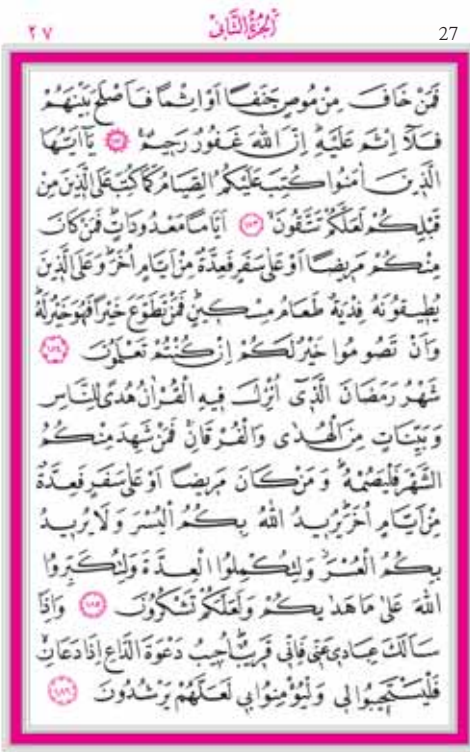 ٢٧
الجزء الثاني
27
فَمَنْ خَافَ مِنْ مُوصٍ جَنَفًا اَوْ اِثْمًا فَاَصْلَحَ بَيْنَهُمْ
فَلَٓا اِثْمَ عَلَيْهِ اِنَّ اللّٰهَ غَفُورٌ رَحِيمٌ ﴿١٨٢﴾ يَٓا اَيُّهَا
الَّذِينَ اٰمَنُوا كُتِبَ عَلَيْكُمُ الصِّيَامُ كَمَا كُتِبَ عَلَى الَّذِينَ مِنْ
قَبْلِكُمْ لَعَلَّكُمْ تَتَّقُونَ ﴿١٨٣﴾ اَيَّامًا مَعْدُودَاتٍ فَمَنْ كَانَ
مِنْكُمْ مَرِيضًا اَوْ عَلٰى سَفَرٍ فَعِدَّةٌ مِنْ اَيَّامٍ اُخَرَ وَعَلَى الَّذِينَ
يُطِيقُونَهُ فِدْيَةٌ طَعَامُ مِسْكِينٍ فَمَنْ تَطَوَّعَ خَيْرًا فَهُوَ خَيْرٌ لَهُ
وَاَنْ تَصُومُوا خَيْرٌ لَكُمْ اِنْ كُنْتُمْ تَعْلَمُونَ ﴿١٨٤﴾
شَهْرُ رَمَضَانَ الَّذِٓي اُنْزِلَ فِيهِ الْقُرْاٰنُ هُدًى لِلنَّاسِ
وَبَيِّنَاتٍ مِنَ الْهُدٰى وَالْفُرْقَانِ فَمَنْ شَهِدَ مِنْكُمُ
الشَّهْرَ فَلْيَصُمْهُ وَمَنْ كَانَ مَرِيضًا اَوْ عَلٰى سَفَرٍ فَعِدَّةٌ
مِنْ اَيَّامٍ اُخَرَ يُرِيدُ اللّٰهُ بِكُمُ الْيُسْرَ وَلَا يُرِيدُ
بِكُمُ الْعُسْرَ وَلِتُكْمِلُوا الْعِدَّةَ وَلِتُكَبِّرُوا
اللّٰهَ عَلٰى مَا هَدٰيكُمْ وَلَعَلَّكُمْ تَشْكُرُونَ ﴿١٨٥﴾ وَاِذَا
سَاَلَكَ عِبَادِي عَنِّي فَاِنِّي قَرِيبٌ اُجِيبُ دَعْوَةَ الدَّاعِ اِذَا دَعَانِ
فَلْيَسْتَجِيبُوا لِي وَلْيُؤْمِنُوا بِي لَعَلَّهُمْ يَرْشُدُونَ ﴿١٨٦﴾